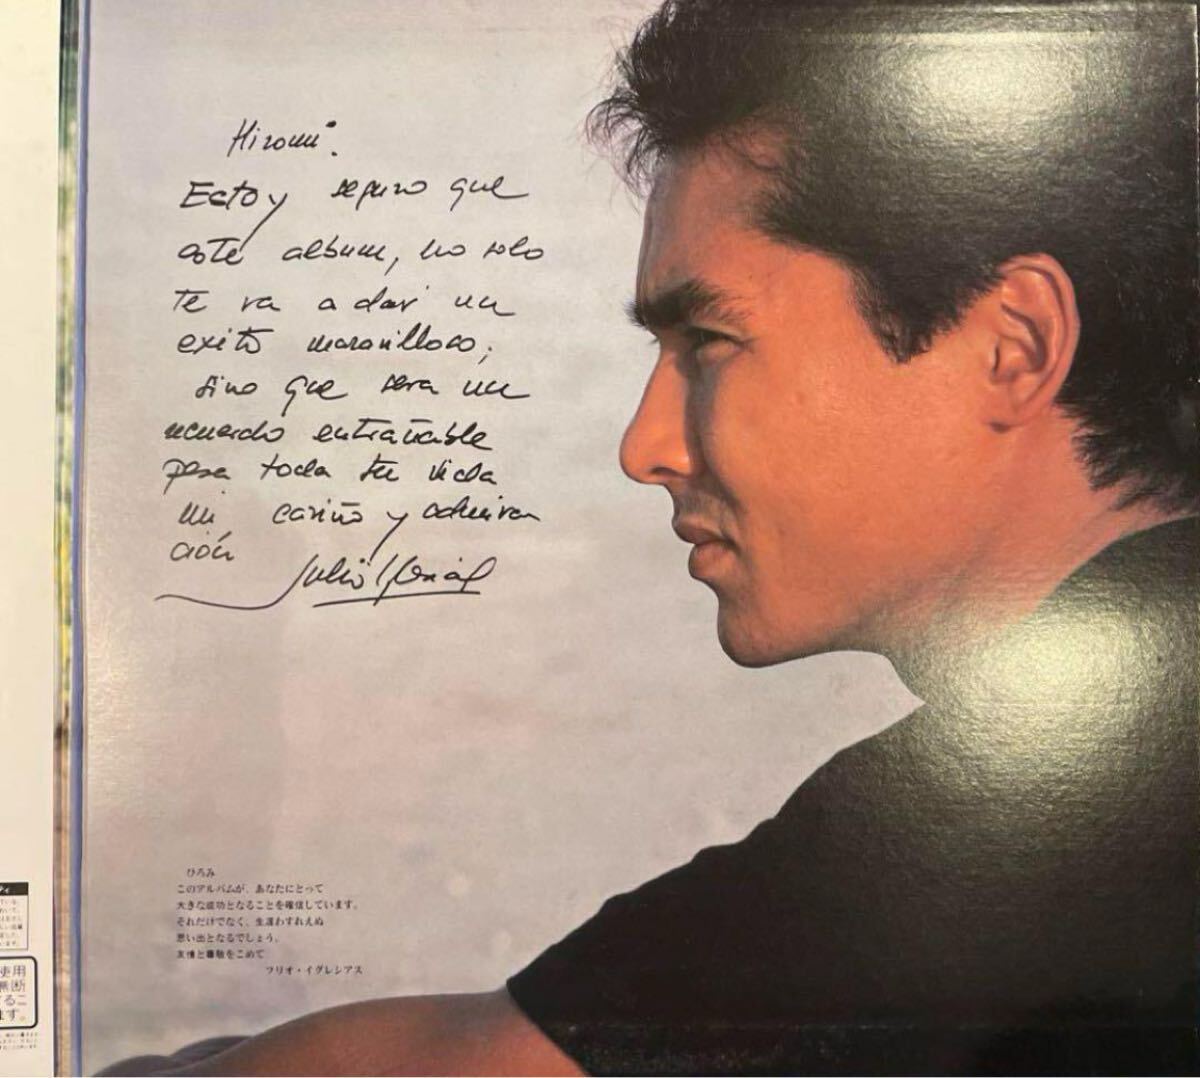 Hiromi:
Estoy seguro que
este album, no solo
te va a dar un
exito maravilloso,
sino que sera un
recuerdo entrañable
para toda tu vida
mi cariño y admira
ción
Julio Iglesias
ひろみ
このアルバムが、あなたにとって
大きな成功となることを確信しています。
それだけでなく、生涯わすれえぬ
思い出となるでしょう。
友情と尊敬をこめて
フリオ・イグレシアス
使用
無断
るこ
ます。